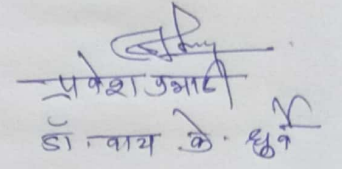 प्रवेश प्रभारी
डॉ. वाय के. धुर्वे